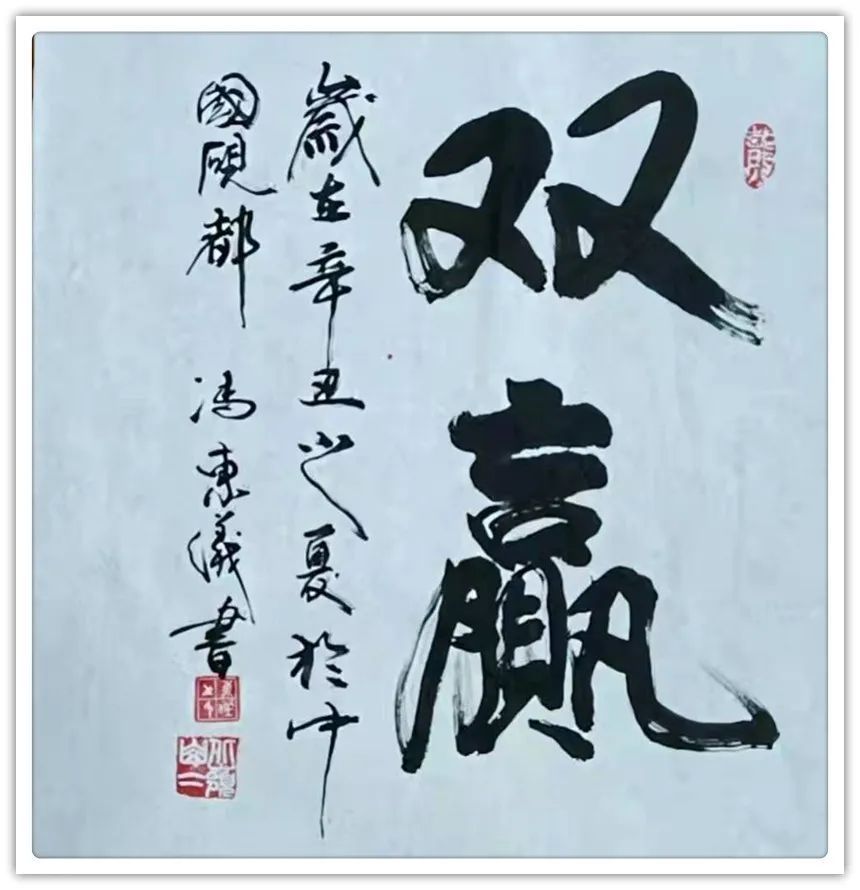 双赢
歲在辛丑之夏於中
國砚都 冯東儀書